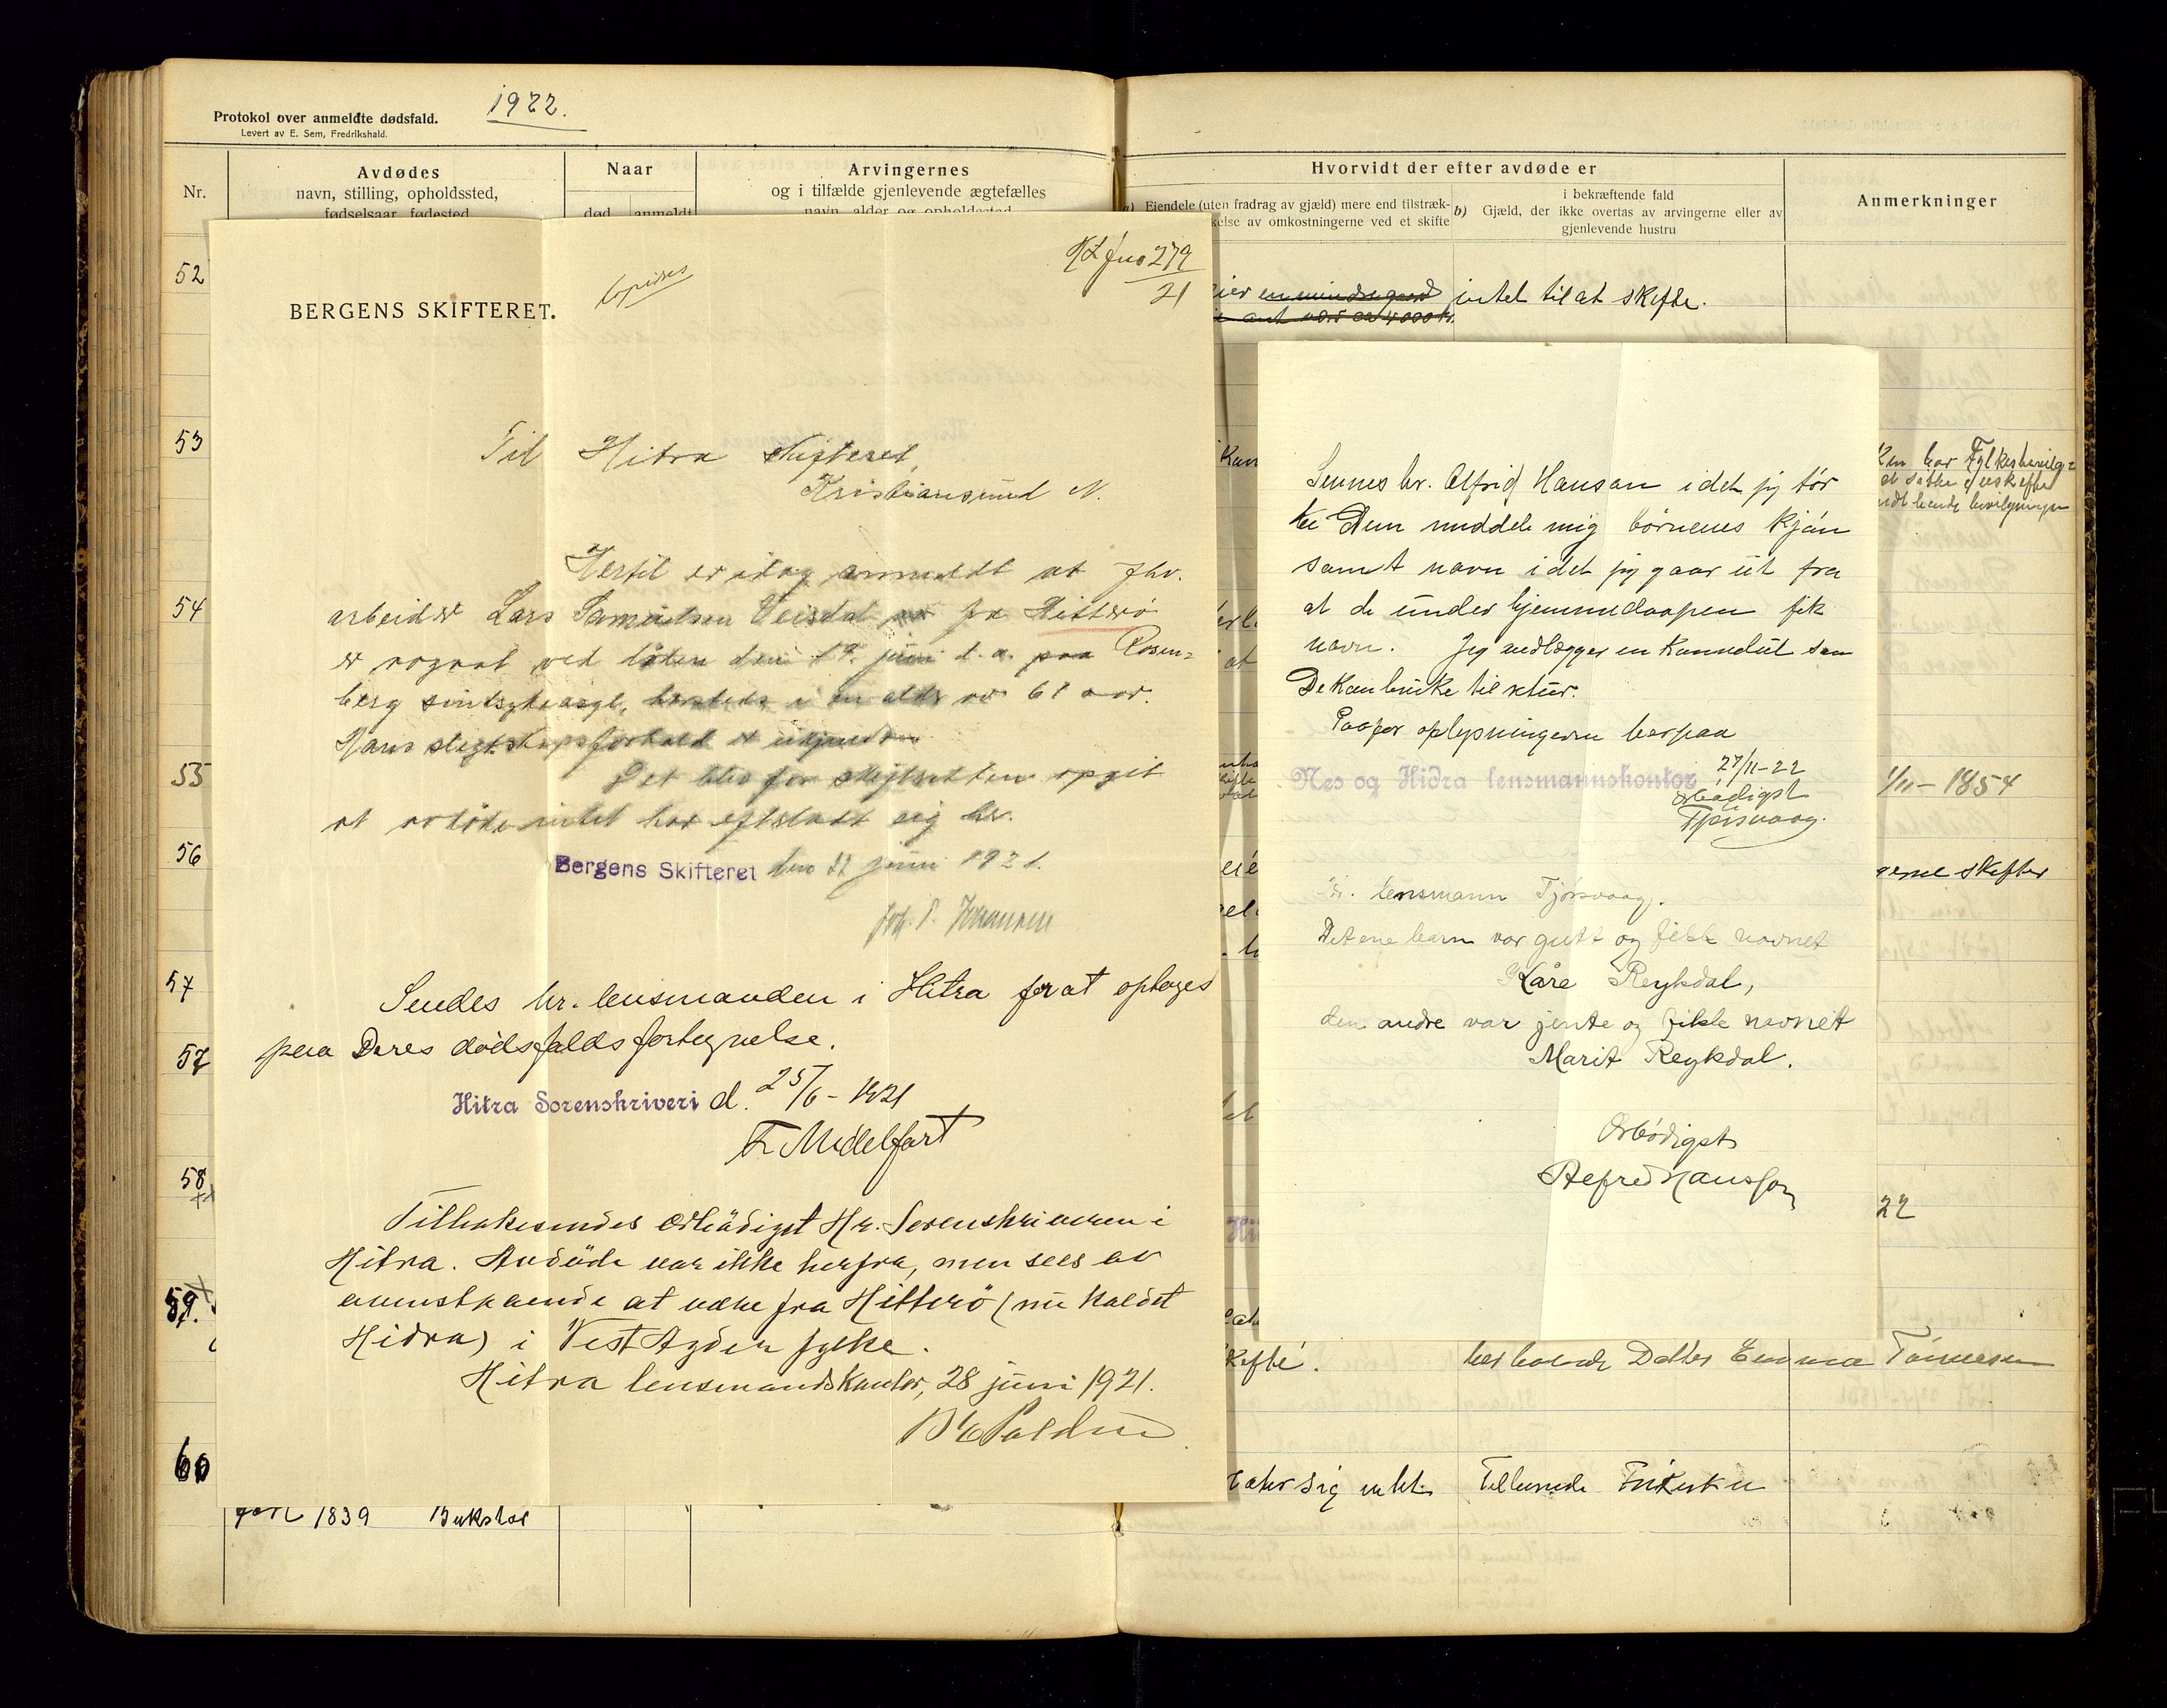 1922.
Protokol over anmeldte dødsfald.
Levert av E. Sem, Fredrikshald.
Nr.
Avdødes
navn, stilling, opholdssted,
fødselsaar, fødested
Naar
død anmeldt
Arvingernes
og i tilfælde gjenlevende ægtefælles
navn, alder og opholdssted
Hvorvidt der efter avdøde er
a) Eiendele (uten fradrag av gjæld) mere end tilstræk-
kelse av omkostningerne ved et skifte
b) i bekræftende fald
Gjæld, der ikke overtas av arvingerne eller av
gjenlevende hustru
Anmerkninger
52
53
54
55
56
57
57
58
59.
60
279
21
kopieres
BERGENS SKIFTERET.
Til Hitra skifteret,
Kristiansund N.
Hertil er idag anmeldt at fhv.
arbeider Lars Samuelsen Veisdal fra Hitterø
er avgaat ved døden den 19. juni d.a. paa Rosen=
berg sindsykeasyl, hersteds i en alder av 61 aar.
Hans slegtskapsforhold er
Det blev for skifteretten opgit
at avdøde intet har efterladt sig her.
Bergens Skifteret den 22 juni 1921.
Sendes hr. lensmanden i Hitra for at optages
paa Deres dødsfaldsfortegnelse.
Hitra Sorenskriveri d. 25/6 - 1921
F. Midelfart
Tilbakesendes ærbødigst Hr. Sorenskriveren i
Hitra. Avdøde var ikke herfra, men sees av
ovenstaaende at være fra Hitterö (nu kaldet
Hidra) i Vest Agder fylke.
Hitra lensmandskontor, 28 juni 1921.
født 1839 Bukstøl
intet til at skifte.
Sennes hr. Alfrid Hansen idet jeg tør
be Dem meddele mig børnenes kjøn
samt navn idet jeg gaar ut fra
at de under hjemmedaapen fik
navn. Jeg vedlægger en konvolut som
De kan bruke til retur.
Paafør oplysningerne herpaa
Nes og Hidra lensmannskontor 27/11-22
Ærbødigst
Tjørsvaag.
Hr. lensmann Tjørsvaag.
Det ene barn var gutt og fikk navnet
Kåre Reykdal,
den andre var jente og fikk navnet
Marit Reykdal.
Ærbødigst
Alfred Hansson
1/11 - 1854
skifter
22
skifte. Datter Emma Tønnesen
sig intet.